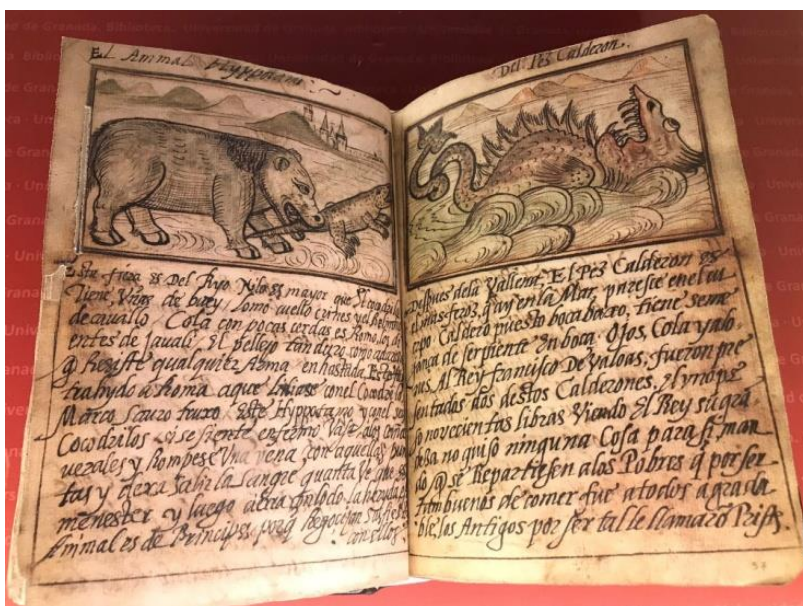 El Animal Hyppotamo
Esta fiera es Del Ryo Nylo es mayor que el cocodrilo
Tiene Vñas de buey, lomo cuello crines y el Relincho
de cavallo Cola con pocas cerdas es Romo, los di
entes de Javali, el pellejo tan duro
q Resiste qualquier Arma enhastada
trahydo a Roma
Marco Scauro truxo este Hyppotamo y
Cocodrilos si se siente enfermo Vase a los
verales y Rompese Vna vena con aquellas pun
tas y dexa salir la sangre quanta Ve que es
menester y luego
Animales de Principes
Del Pez Calderon.
Despues dela Vallena, El Pez Calderon es
el mas feroz, q ay en la Mar, paresce en el cu
erpo Caldero puesto boca baxo, tiene seme
jança de serpiente En boca, Ojos, Cola y alo
nes, Al Rey francisco De Valoes, fueron pre
sentados dos destos Calderones, el Vno pe
so novecientas libras Viendo El Rey sa gra
deza no quiso ninguna Cosa para si, man
do q se Repartiesen a los Pobres q por ser
tam buenos de comer fue a todos agrada
ble, los Antigos por ser tal le llamarõ Pristi.
57
Universidad de Granada